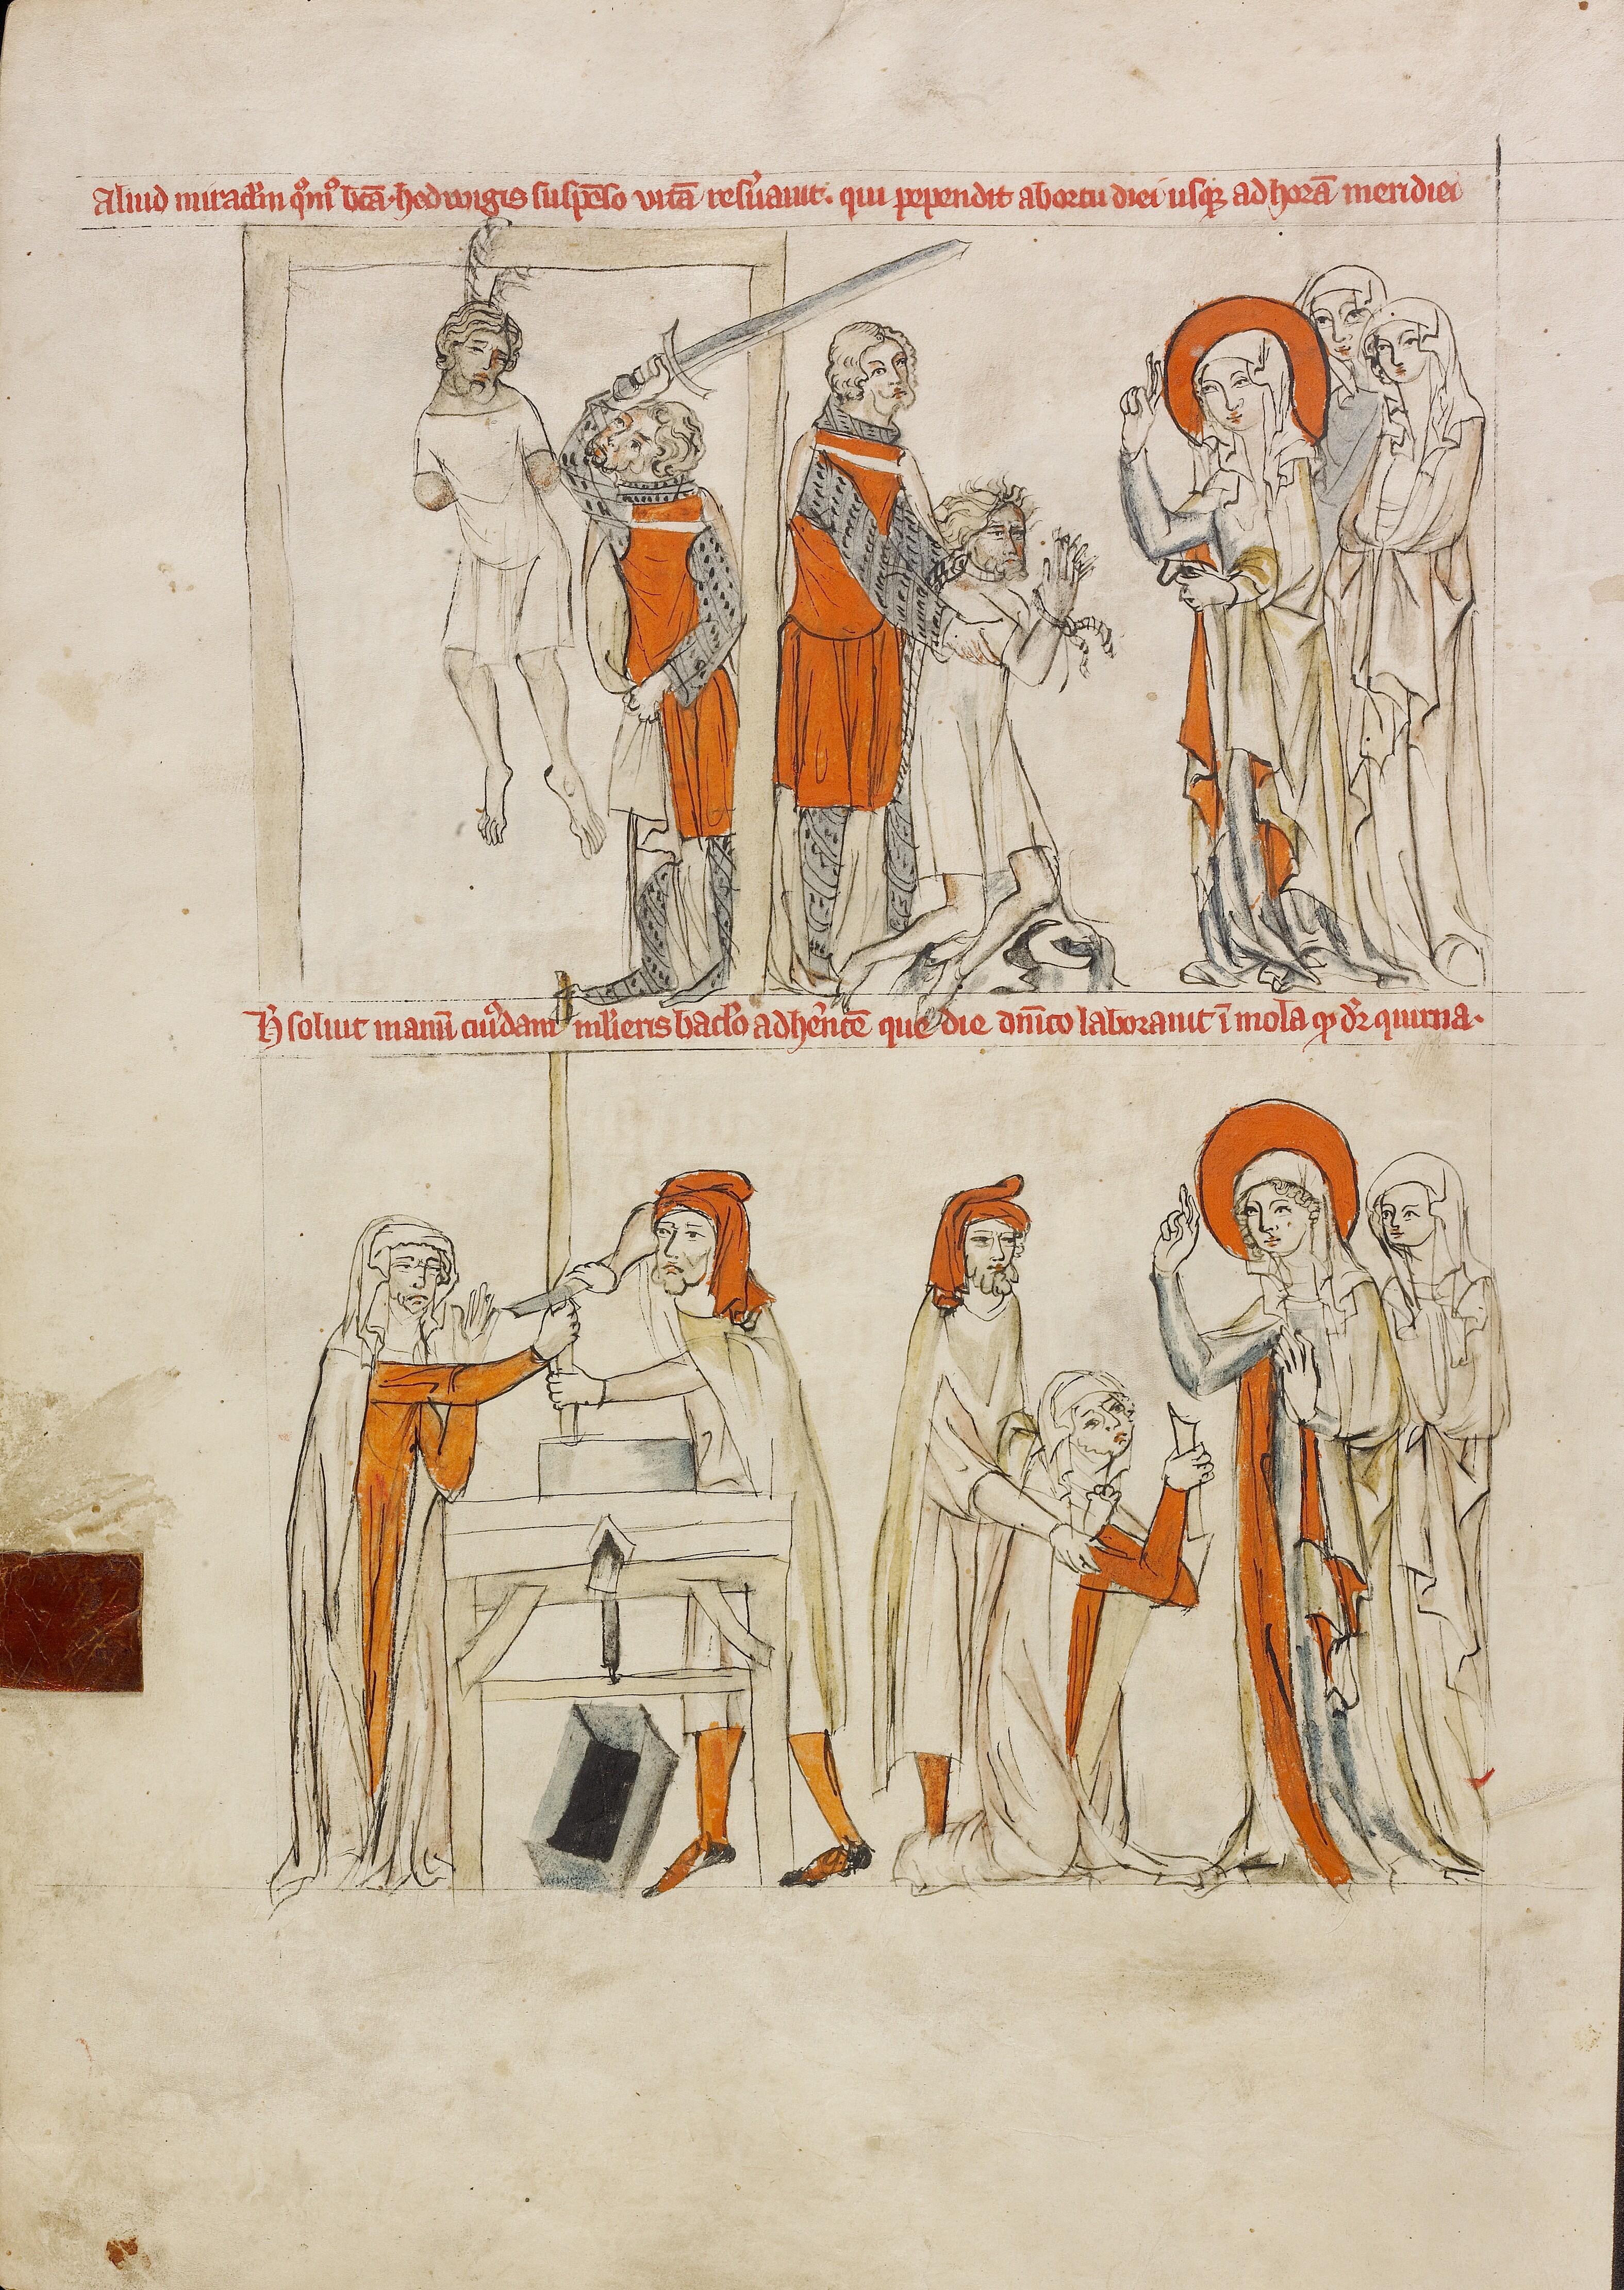 Aliud miraclm qm̊ bt̄a hedwigis suspēso vitā res̾uauit. qui pependit ab ortu diei usqꝫ ad horā meridiei
H̾ soluit manū cui̾dam mul̾ieris bacl̾o adh̾entē que die dn̄ico laborauit ī mola q̄ dr̄ quirna.